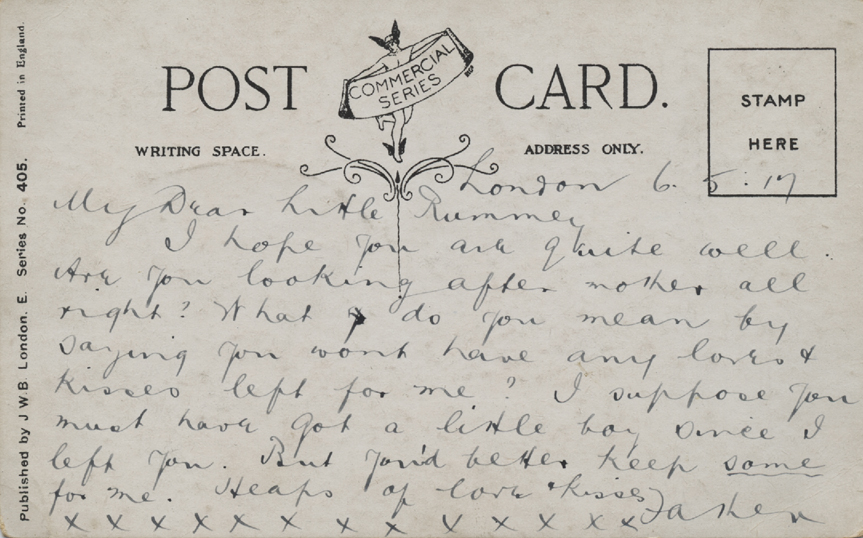 POST CARD.
COMMERCIAL
SERIES
STAMP
HERE
WRITING SPACE.
ADDRESS ONLY.
London 6.5.17
My Dear Little Rummey
I hope you are quite well.
Are you looking after mother all
right? What do you mean by
saying you wont have any loves &
kisses left for me? I suppose you
must have got a little boy since I
left you. But you'd better keep some
for me. Heaps of love & kisses
x x x x x x x x x x x x x Father
Published by J W B London. E. Series No. 405. Printed in England.